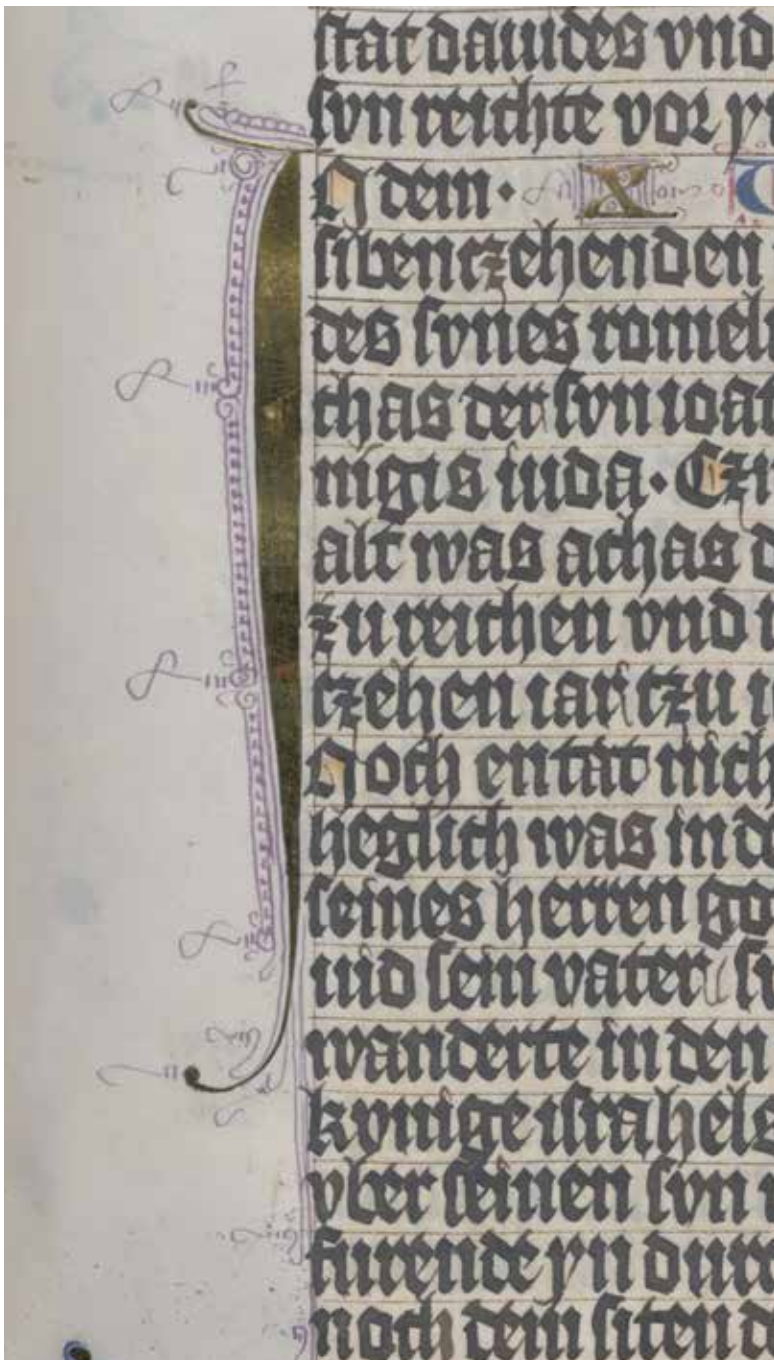 stat dauides vnd
syn reichte vor y
N dem · X V
sibentzehenden
des synes romel
chas der syn ioat
nigis iuda · Czu
alt was achas d
zu reichen vnd i
tzehen iar tzu i
Noch entat nich
heglich was in de
seines herren go
uid sein vater si
wanderte in den
kynige israhels
vber seinen syn
furende yn durc
noch dem siten d